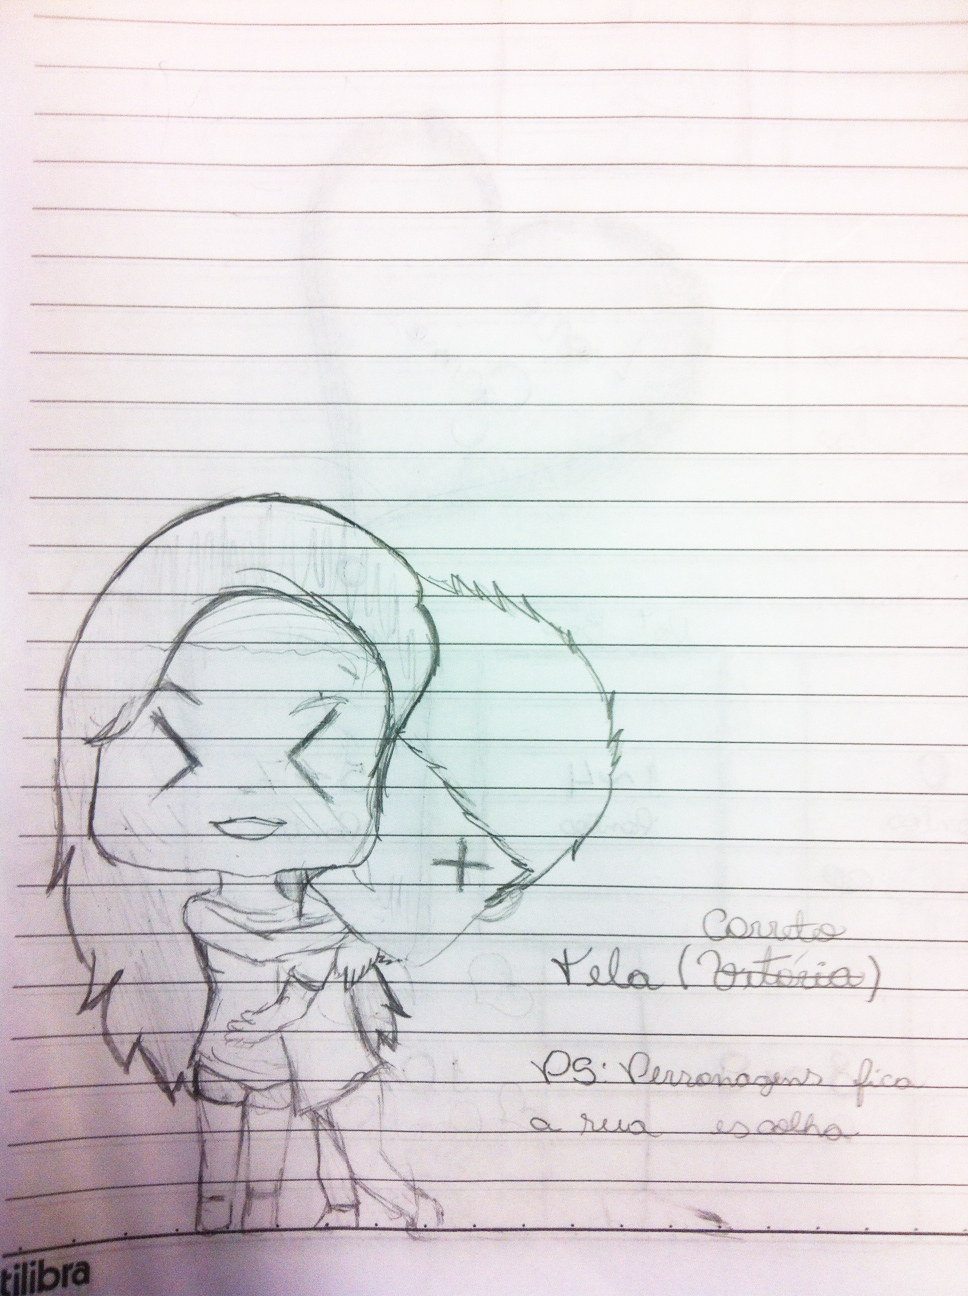 Correto
Tela (Vitória)
PS: Personagens fica
a sua escolha
tilibra